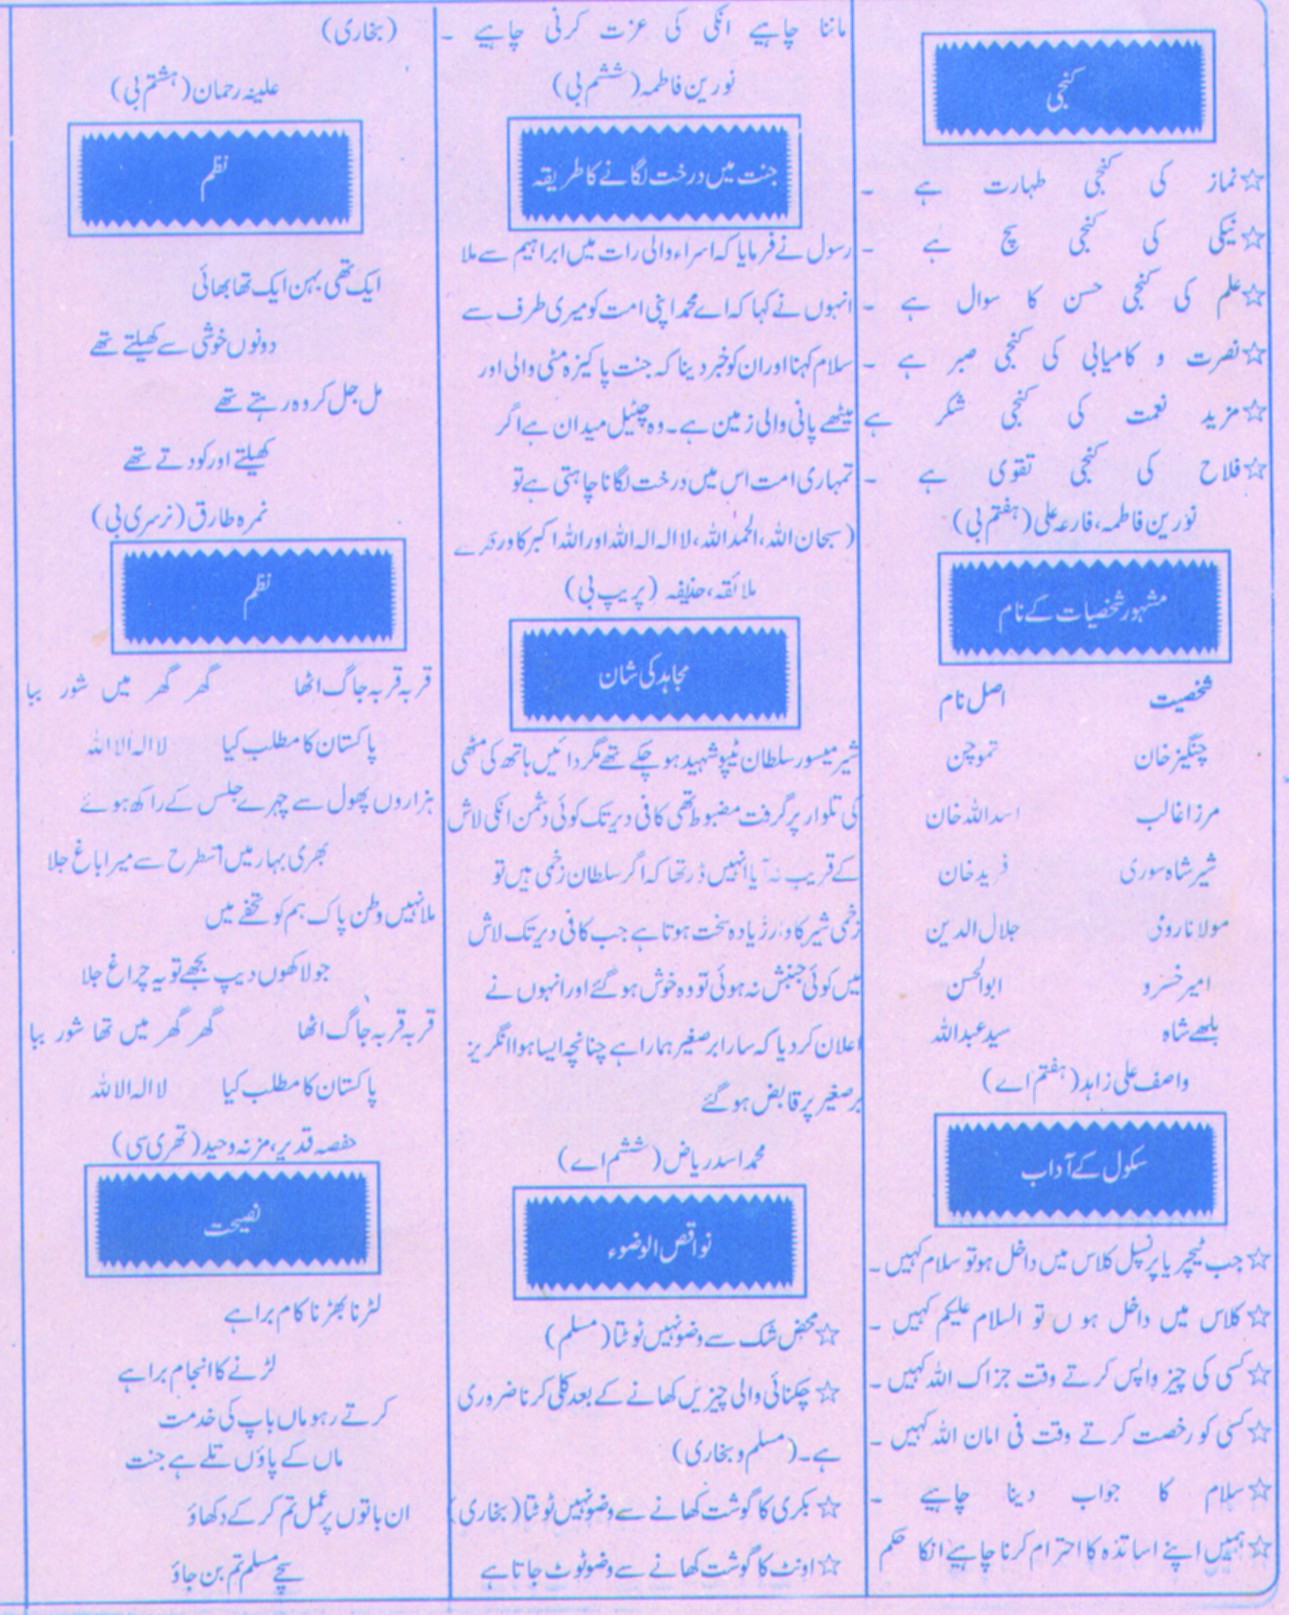 کنجی
☆نماز کی کنجی طہارت ہے ۔
☆نیکی کی کنجی سچ ہے ۔
☆علم کی کنجی حسن کا سوال ہے ۔
☆نصرت و کامیابی کی کنجی صبر ہے ۔
☆مزید نعمت کی کنجی شکر ہے
☆فلاح کی کنجی تقوی ہے ۔
نورین فاطمہ، فارعہ علی (ہفتم بی)
مشہور شخصیات کے نام
شخصیت اصل نام
چنگیز خان تموچن
مرزا غالب اسد اللہ خان
شیر شاہ سوری فرید خان
مولانا رومی جلال الدین
امیر خسرو ابوالحسن
بلھے شاہ سید عبداللہ
واصف علی زاہد (ہفتم اے)
سکول کے آداب
☆جب ٹیچر یا پرنسپل کلاس میں داخل ہو تو سلام کہیں ۔
☆کلاس میں داخل ہوں تو السلام علیکم کہیں ۔
☆کسی کی چیز واپس کرتے وقت جزاک اللہ کہیں ۔
☆کسی کو رخصت کرتے وقت فی امان اللہ کہیں ۔
☆سلام کا جواب دینا چاہیے ۔
☆ہمیں اپنے اساتذہ کا احترام کرنا چاہیے انکا حکم
ماننا چاہیے انکی کی عزت کرنی چاہیے ۔
نورین فاطمہ (ششم بی)
جنت میں درخت لگانے کا طریقہ
رسول نے فرمایا کہ اسراء والی رات میں ابراہیم سے ملا
انہوں نے کہا کہ اے محمد اپنی امت کو میری طرف سے
سلام کہنا اور ان کو خبر دینا کہ جنت پاکیزہ مٹی والی اور
میٹھے پانی والی زمین ہے۔ وہ چٹیل میدان ہے اگر
تمہاری امت اس میں درخت لگانا چاہتی ہے تو
(سبحان اللہ، الحمد اللہ، لا الہ الہ اللہ اور اللہ اکبر کا ورد کرے
ملائقہ، حذیفہ (پریپ بی)
مجاہد کی شان
شیر میسور سلطان ٹیپو شہید ہو چکے تھے مگر دائیں ہاتھ کی مٹھی
کی تلوار پر گرفت مضبوط تھی کافی دیر تک کوئی دشمن انکی لاش
کے قریب نہ آیا انہیں ڈر تھا کہ اگر سلطان زخمی ہیں تو
زخمی شیر کا وار زیادہ سخت ہوتا ہے جب کافی دیر تک لاش
میں کوئی جنبش نہ ہوئی تو وہ خوش ہو گئے اور انہوں نے
اعلان کر دیا کہ سارا برصغیر ہمارا ہے چنانچہ ایسا ہوا انگریز
برصغیر پر قابض ہو گئے
محمد اسد ریاض (ششم اے)
نواقص الوضوء
☆محض شک سے وضو نہیں ٹوٹتا (مسلم)
☆چکنائی والی چیزیں کھانے کے بعد کلی کرنا ضروری
ہے۔ (مسلم و بخاری)
☆بکری کا گوشت کھانے سے وضو نہیں ٹوٹتا (بخاری)
☆اونٹ کا گوشت کھانے سے وضو ٹوٹ جاتا ہے
(بخاری)
علینہ رحمان (ہشتم بی)
نظم
ایک تھی بہن ایک تھا بھائی
دونوں خوشی سے کھیلتے تھے
مل جل کر وہ رہتے تھے
کھیلتے اور کودتے تھے
نمرہ طارق (نرسری بی)
نظم
قریہ قریہ جاگ اٹھا گھر گھر میں شور بپا
پاکستان کا مطلب کیا لا الہ الا اللہ
ہزاروں پھول سے چہرے جلس کے راکھ ہوئے
بھری بہار میں اسطرح سے میرا باغ جلا
ملا نہیں وطن پاک ہم کو تحفے میں
جو لاکھوں دیپ بجھے تو یہ چراغ جلا
قریہ قریہ جاگ اٹھا گھر گھر میں تھا شور بپا
پاکستان کا مطلب کیا لا الہ الا اللہ
حفصہ قدیر، مزنہ وحید (تھری سی)
نصیحت
لڑنا بھڑنا کام برا ہے
لڑنے کا انجام برا ہے
کرتے رہو ماں باپ کی خدمت
ماں کے پاؤں تلے ہے جنت
ان باتوں پر عمل تم کر کے دکھاؤ
سچے مسلم تم بن جاؤ